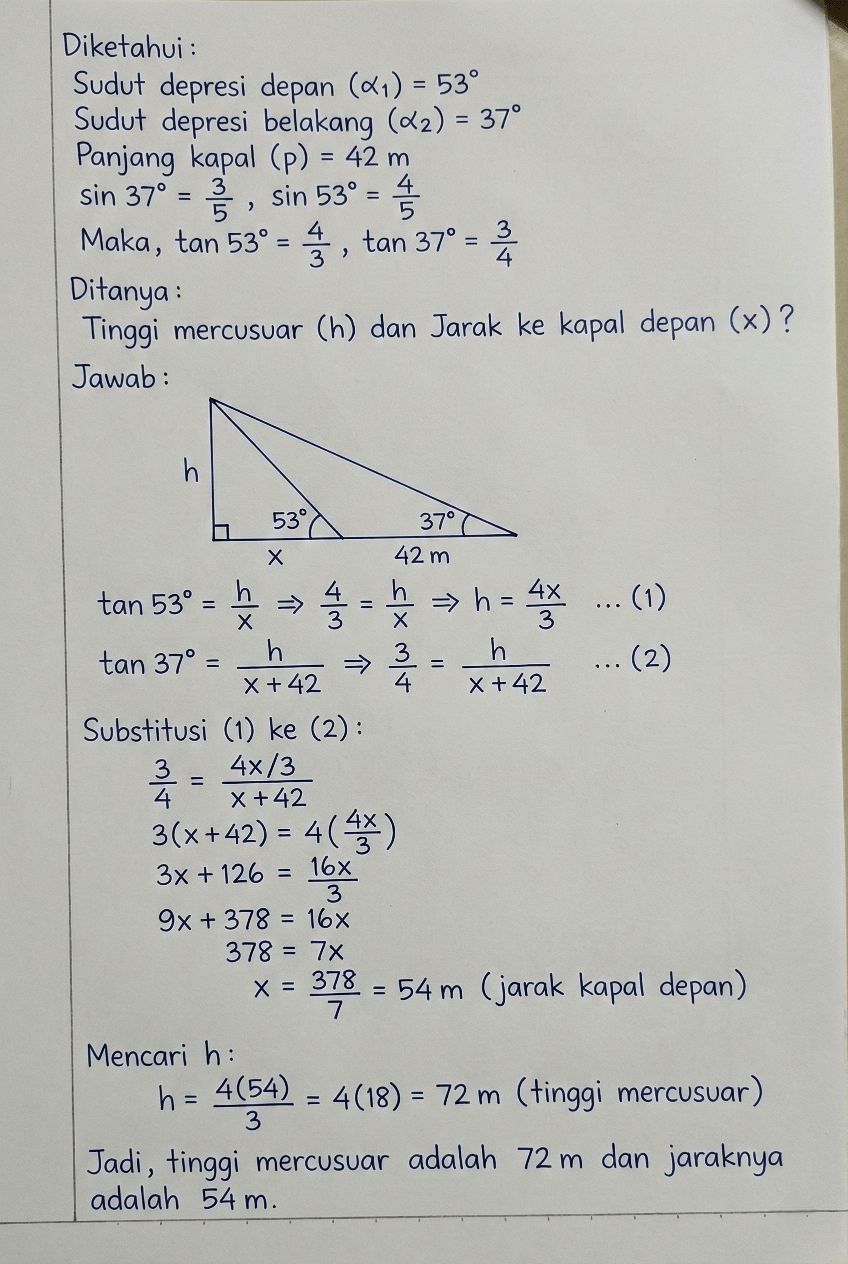 Diketahui :
Sudut depresi depan (α₁) = 53°
Sudut depresi belakang (α₂) = 37°
Panjang kapal (p) = 42 m
sin 37° = 3/5 , sin 53° = 4/5
Maka, tan 53° = 4/3 , tan 37° = 3/4
Ditanya :
Tinggi mercusuar (h) dan Jarak ke kapal depan (x) ?
Jawab :
h
53° 37°
x 42 m
tan 53° = h/x ⇒ 4/3 = h/x ⇒ h = 4x/3 ... (1)
tan 37° = h/(x + 42) ⇒ 3/4 = h/(x + 42) ... (2)
Substitusi (1) ke (2) :
3/4 = (4x/3)/(x + 42)
3(x + 42) = 4(4x/3)
3x + 126 = 16x/3
9x + 378 = 16x
378 = 7x
x = 378/7 = 54 m (jarak kapal depan)
Mencari h :
h = 4(54)/3 = 4(18) = 72 m (tinggi mercusuar)
Jadi, tinggi mercusuar adalah 72 m dan jaraknya
adalah 54 m.